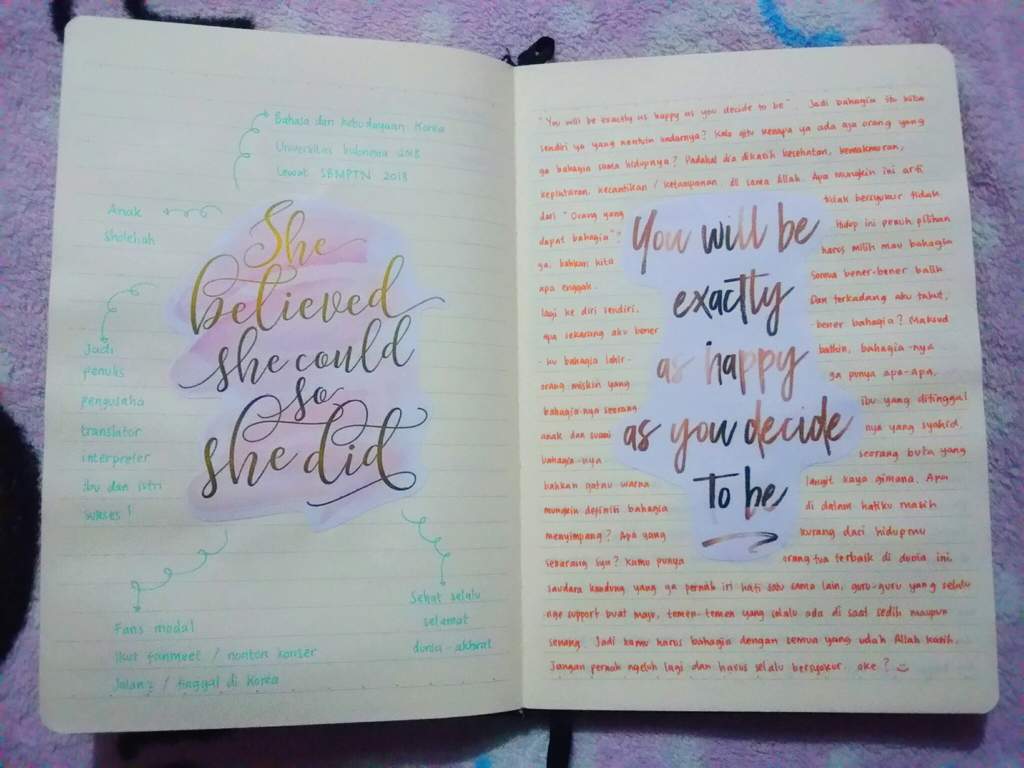 Bahasa dan kebudayaan Korea
Universitas Indonesia 2018
Lewat SBMPTN 2018
Anak
sholehah
She
believed
she could
so
she did
Jadi
penulis
pengusaha
translator
interpreter
ibu dan istri
sukses!
Fans modal
Ikut fanmeet / nonton konser
Jalan2 / tinggal di Korea
Sehat selalu
selamat
dunia-akhirat
"You will be exactly as happy as you decide to be". Jadi bahagia itu kita
sendiri ya yang nentuin kadarnya? Kalo gitu kenapa ya ada aja orang yang
ga bahagia sama hidupnya? Padahal dia dikasih kesehatan, kemakmuran,
kepintaran, kecantikan / ketampanan dll sama Allah. Apa mungkin ini arti
dari "Orang yang tidak bersyukur tidak
dapat bahagia"? Hidup ini penuh pilihan
ya, bahkan kita harus milih mau bahagia
apa enggak. Semua bener-bener balik
lagi ke diri sendiri. Dan terkadang aku takut,
apa sekarang aku bener bener bahagia? Maksud
-ku bahagia lahir- bathin, bahagia-nya
orang miskin yang ga punya apa-apa,
bahagia-nya seorang ibu yang ditinggal
anak dan suami nya yang syahid,
bahagia-nya seorang buta yang
bahkan gatau warna langit kaya gimana. Apa
mungkin definisi bahagia di dalam hatiku masih
menyimpang? Apa yang kurang dari hidupmu
sekarang Sya? Kamu punya orang tua terbaik di dunia ini,
saudara kandung yang ga pernah iri hati satu sama lain, guru-guru yang selalu
nge support buat maju, temen-temen yang selalu ada di saat sedih maupun
senang. Jadi kamu harus bahagia dengan semua yang udah Allah kasih.
Jangan pernah ngeluh lagi dan harus selalu bersyukur. oke?
You will be
exactly
as happy
as you decide
to be